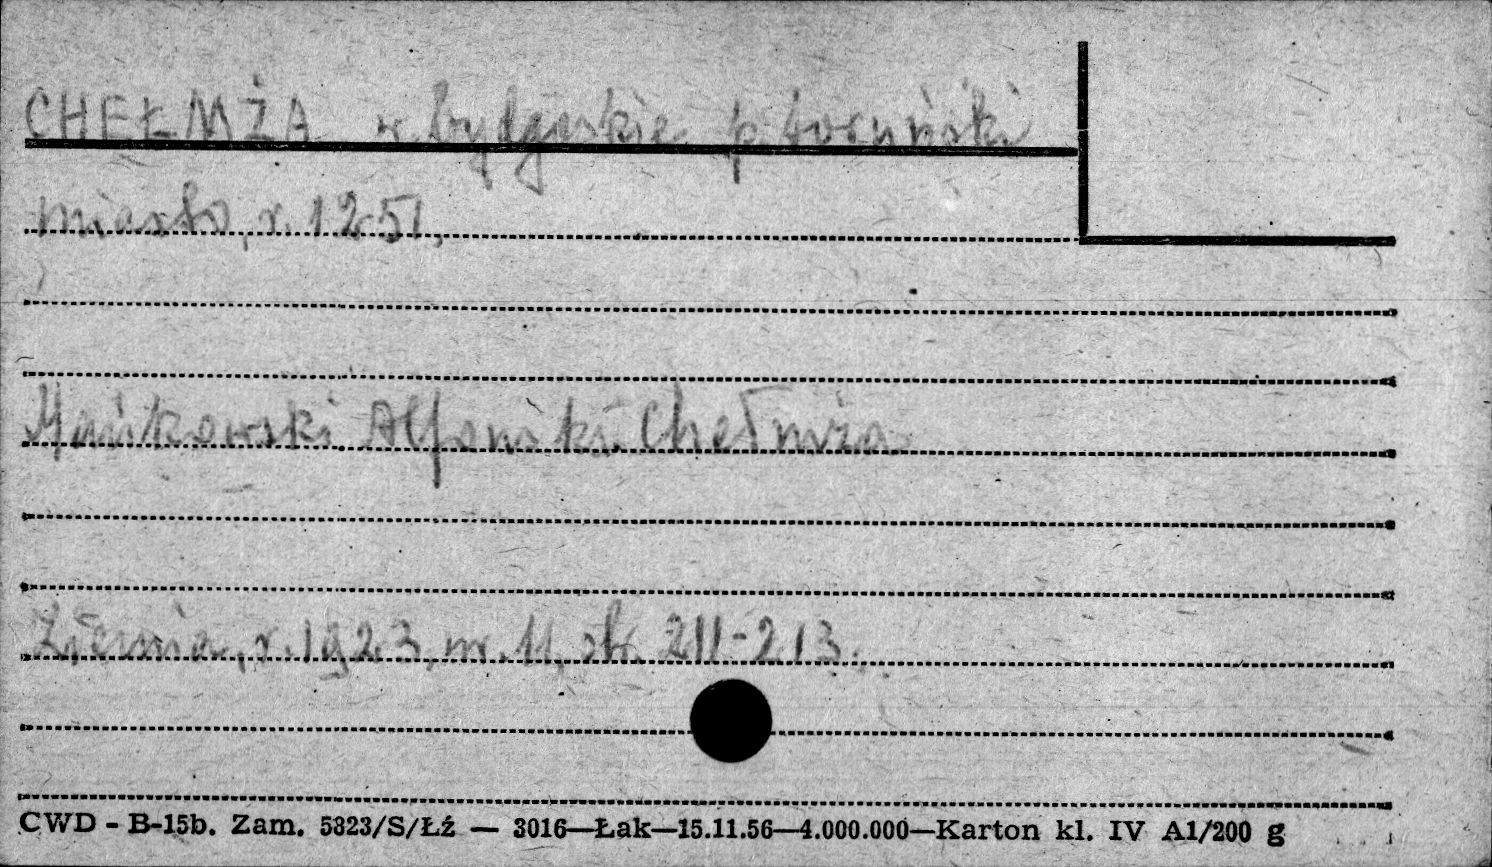 CHEŁMŻA w. bydgoskie p. toruński
miasto, r. 1251,
Mańkowski Alfons ks. Chełmża.
Ziemia, r. 1923, nr. 11, str. 211-213.
CWD - B-15b. Zam. 5323/S/Łź — 3016—Łak—15.11.56—4.000.000—Karton kl. IV A1/200 g